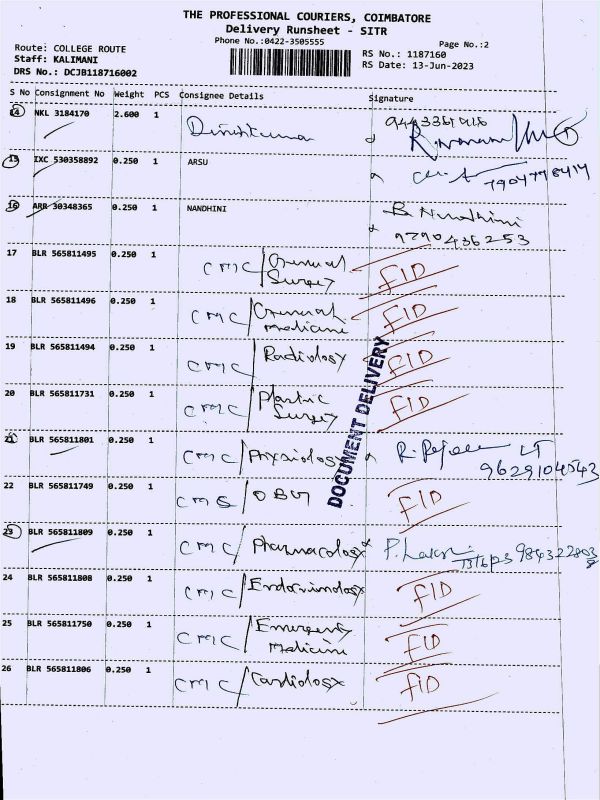 THE PROFESSIONAL COURIERS, COIMBATORE
Delivery Runsheet - SITR
Phone No.:0422-3505555
Page No.:2
Route: COLLEGE ROUTE
RS No.: 1187160
Staff: KALIMANI
RS Date: 13-Jun-2023
DRS No.: DCJB118716002
S No Consignment No Weight PCS Consignee Details Signature
14 NKL 3184170 2.600 1 Dineshkumar
15 IXC 530358892 0.250 1 ARSU 7904778414
16 ARR 30348365 0.250 1 NANDHINI B. Nandhini
9790436253
17 BLR 565811495 0.250 1 CMC/General Surgery FID
18 BLR 565811496 0.250 1 CMC/General Medicine FID
19 BLR 565811494 0.250 1 CMC/Radiology FID
20 BLR 565811731 0.250 1 CMC/Plastic Surgery FID
DOCUMENT DELIVERY
21 BLR 565811801 0.250 1 CMC/Physiology 9629104543
22 BLR 565811749 0.250 1 FID
23 BLR 565811809 0.250 1 CMC/Pharmacology 13/6/23
24 BLR 565811808 0.250 1 CMC/Endocrinology FID
25 BLR 565811750 0.250 1 CMC/Emergency Medicine FID
26 BLR 565811806 0.250 1 CMC/Cardiology FID